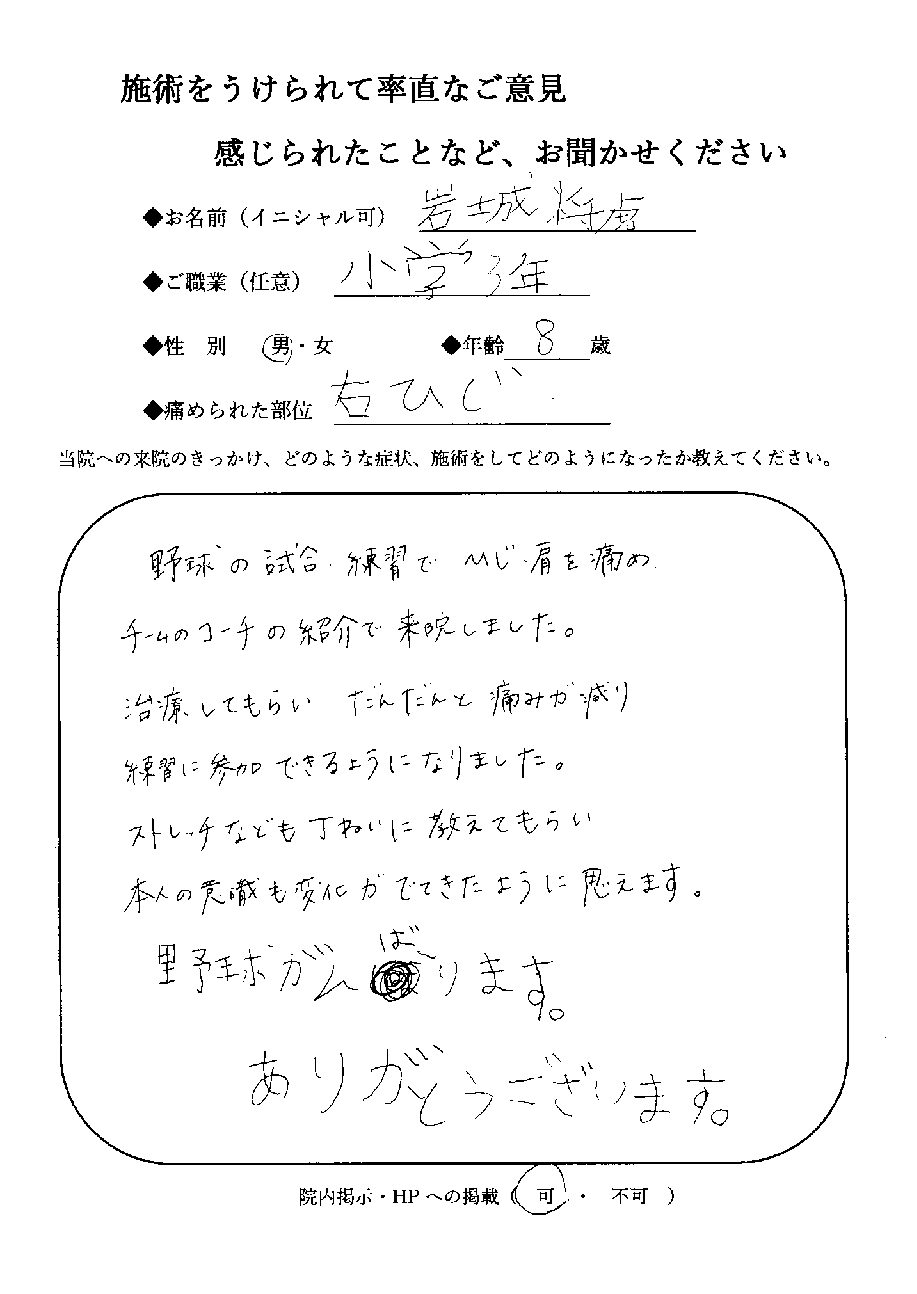 施術をうけられて率直なご意見
感じられたことなど、お聞かせください
◆お名前（イニシャル可） 岩城 将虎
◆ご職業（任意） 小学3年
◆性 別 男・女 ◆年齢 8 歳
◆痛められた部位 右ひじ
当院への来院のきっかけ、どのような症状、施術をしてどのようになったか教えてください。
野球の試合・練習で ひじ・肩を痛め
チームのコーチの紹介で来院しました。
治療してもらい だんだんと痛みが減り
練習に参加できるようになりました。
ストレッチなども丁ねいに教えてもらい
本人の意識も変化がでてきたように思えます。
野球がんばります。
ありがとうございます。
院内掲示・HPへの掲載（ 可 ・ 不可 ）